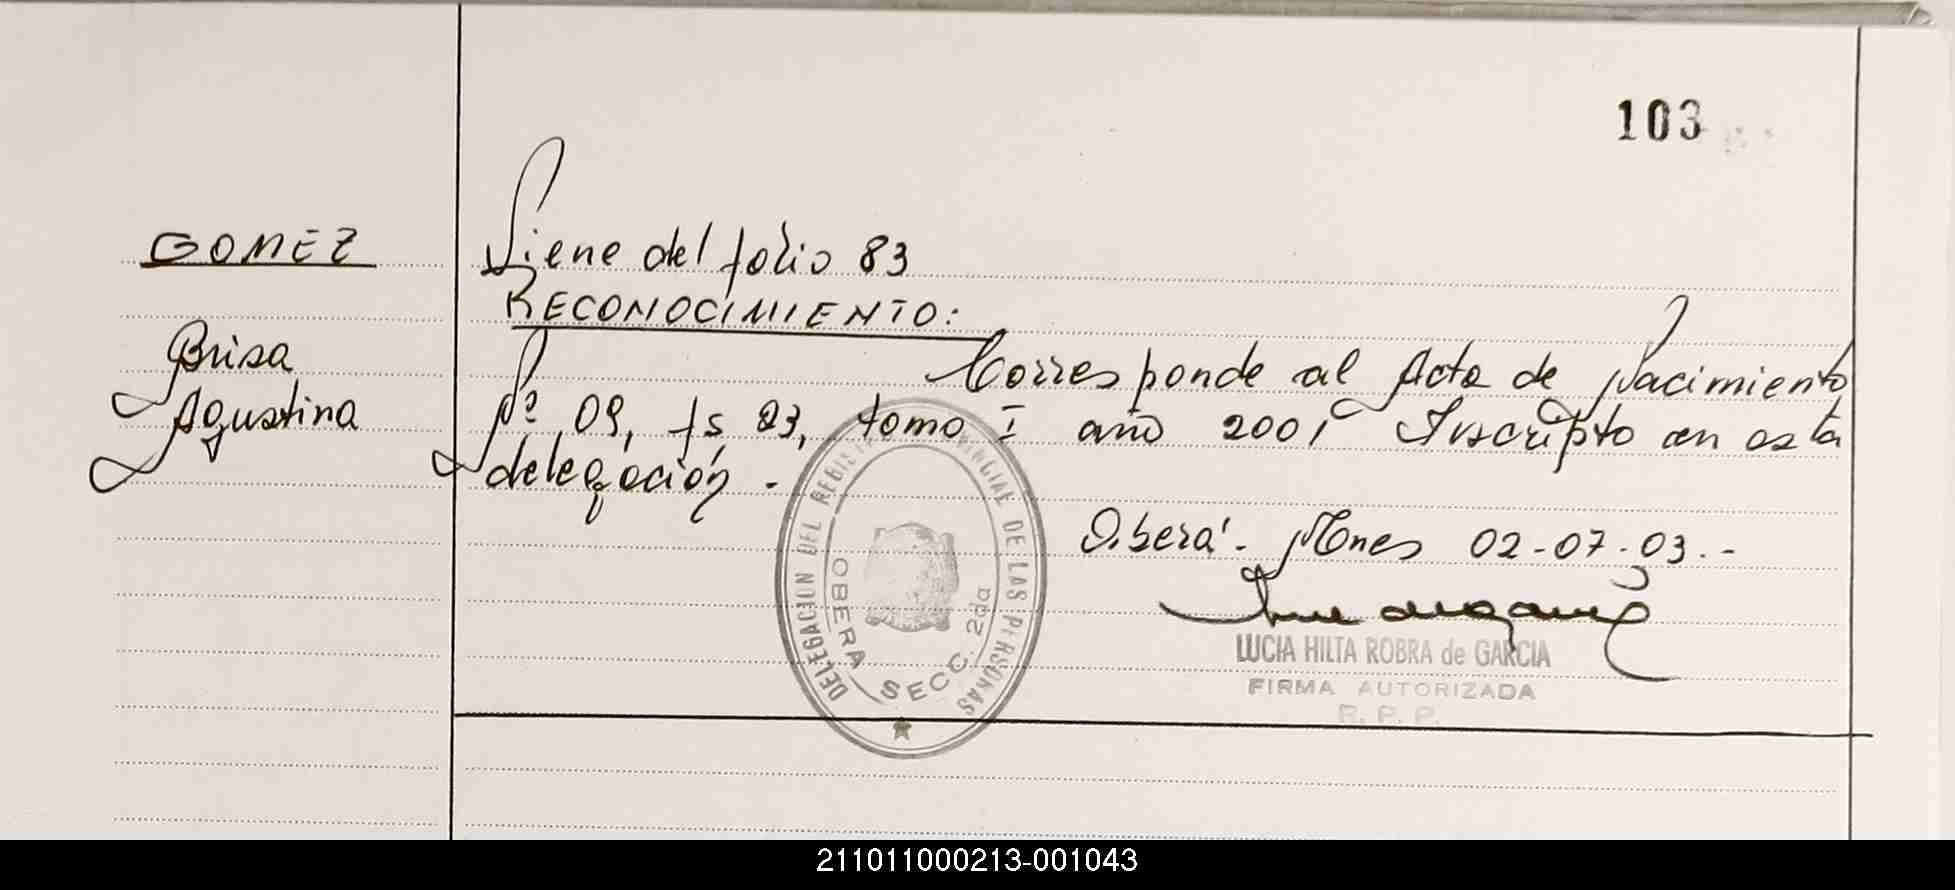 103
GOMEZ
Viene del folio 83
RECONOCIMIENTO:
Brisa
Corresponde al Acta de Nacimiento
Agustina
Nº 09, fs 83, tomo I año 2001 Inscripto en esta
delegación.-
Oberá - Mnes 02-07-03.-
DELEGACION DEL REGISTRO PROVINCIAL DE LAS PERSONAS
OBERA SECC. 2da
LUCIA HILTA ROBRA de GARCIA
FIRMA AUTORIZADA
R. P. P.
211011000213-001043